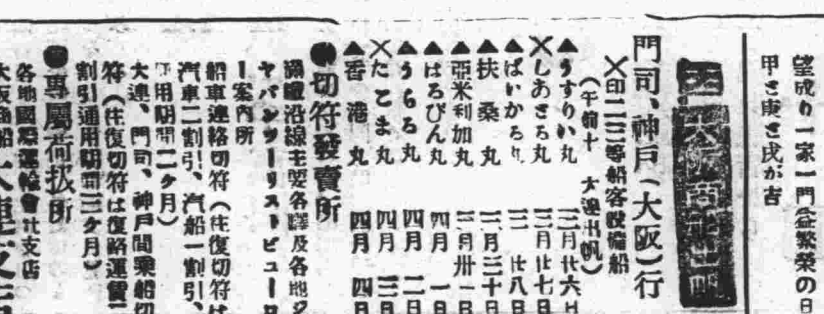 望成り一家一門益繁榮の日
甲さ庚さ戌が吉
門司、神戸(大阪)行
×印二三等船客設備船
(午前十 大連出帆)
▲うすりい丸 三月廿六日
×しあさる丸 三月廿七日
▲ばいかる丸 三 廿八日
▲扶桑丸 三月三十日
▲亞米利加丸 三月卅一日
▲はるびん丸 四月 一日
▲うらる丸 四月 二日
×たこま丸 四月 三日
▲香港丸 四月 四日
●切符發賣所
滿鐵沿線主要各驛及各地
ヤパンツーリストビューロ
ー案内所
船車連絡切符(往復切符は
汽車二割引、汽船一割引、
用期間二ケ月)
大連、門司、神戸間乘船切
符(往復切符は復路運賃
割引通用期間三ケ月)
●專屬荷扱所
各地國際運輸會社支店
大阪商船